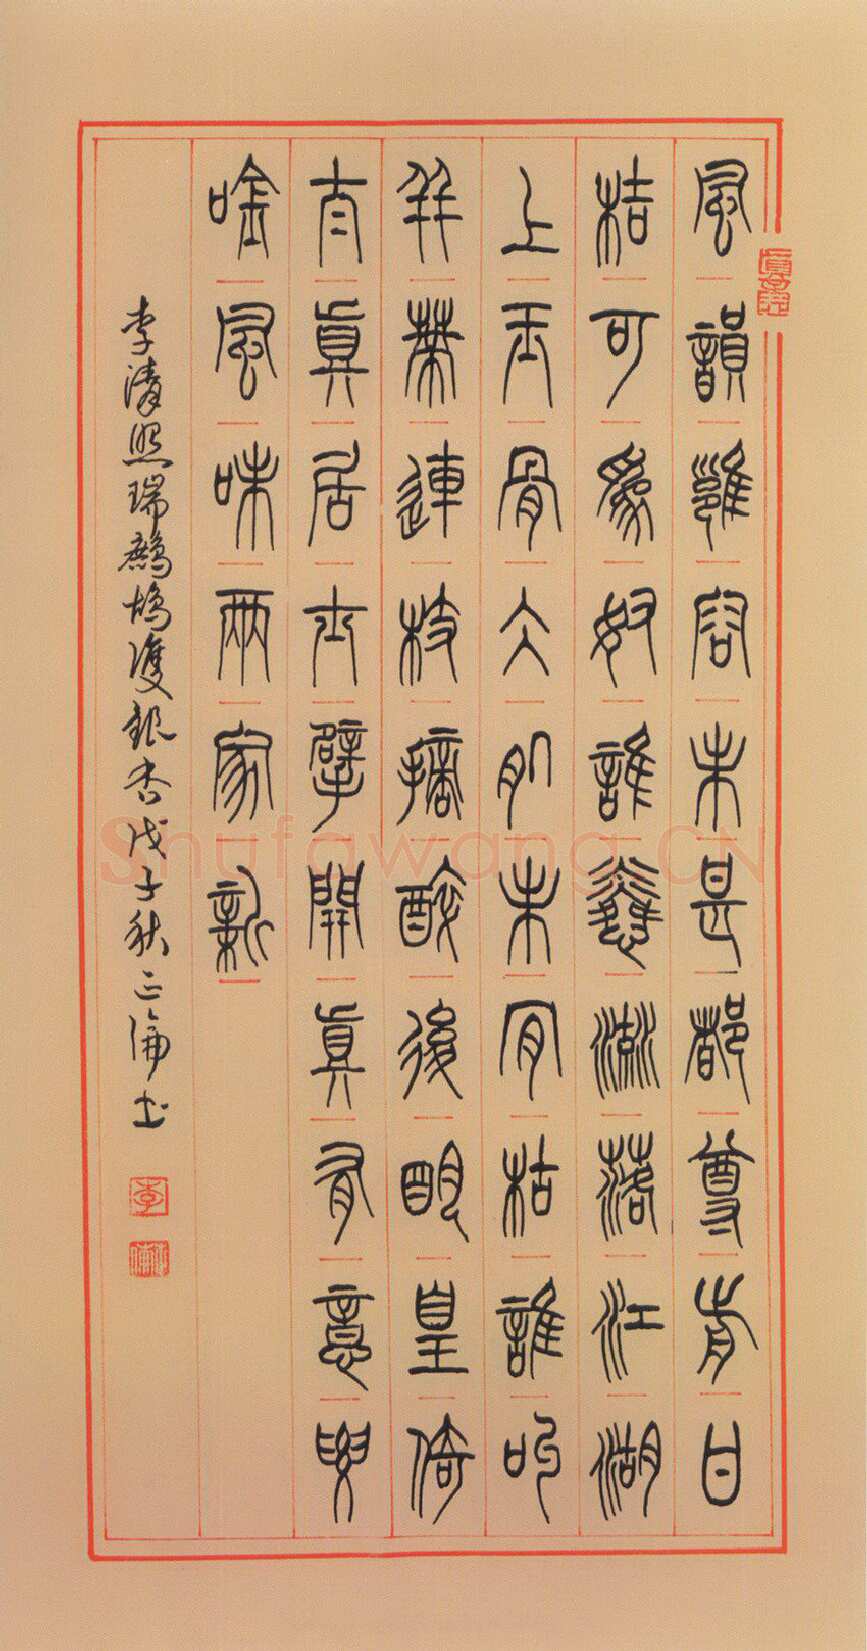 風韻雝容未甚都尊前甘
桔可為奴誰憐流落江湖
上玉骨仌肌未肯枯誰叫
并葉連枝摘醉後明皇倚
太眞居士擘開眞有意要
唫風味兩家新
李清照瑞鷓鴣雙銀杏戊子秋正倫书
李
Shufawang.CN